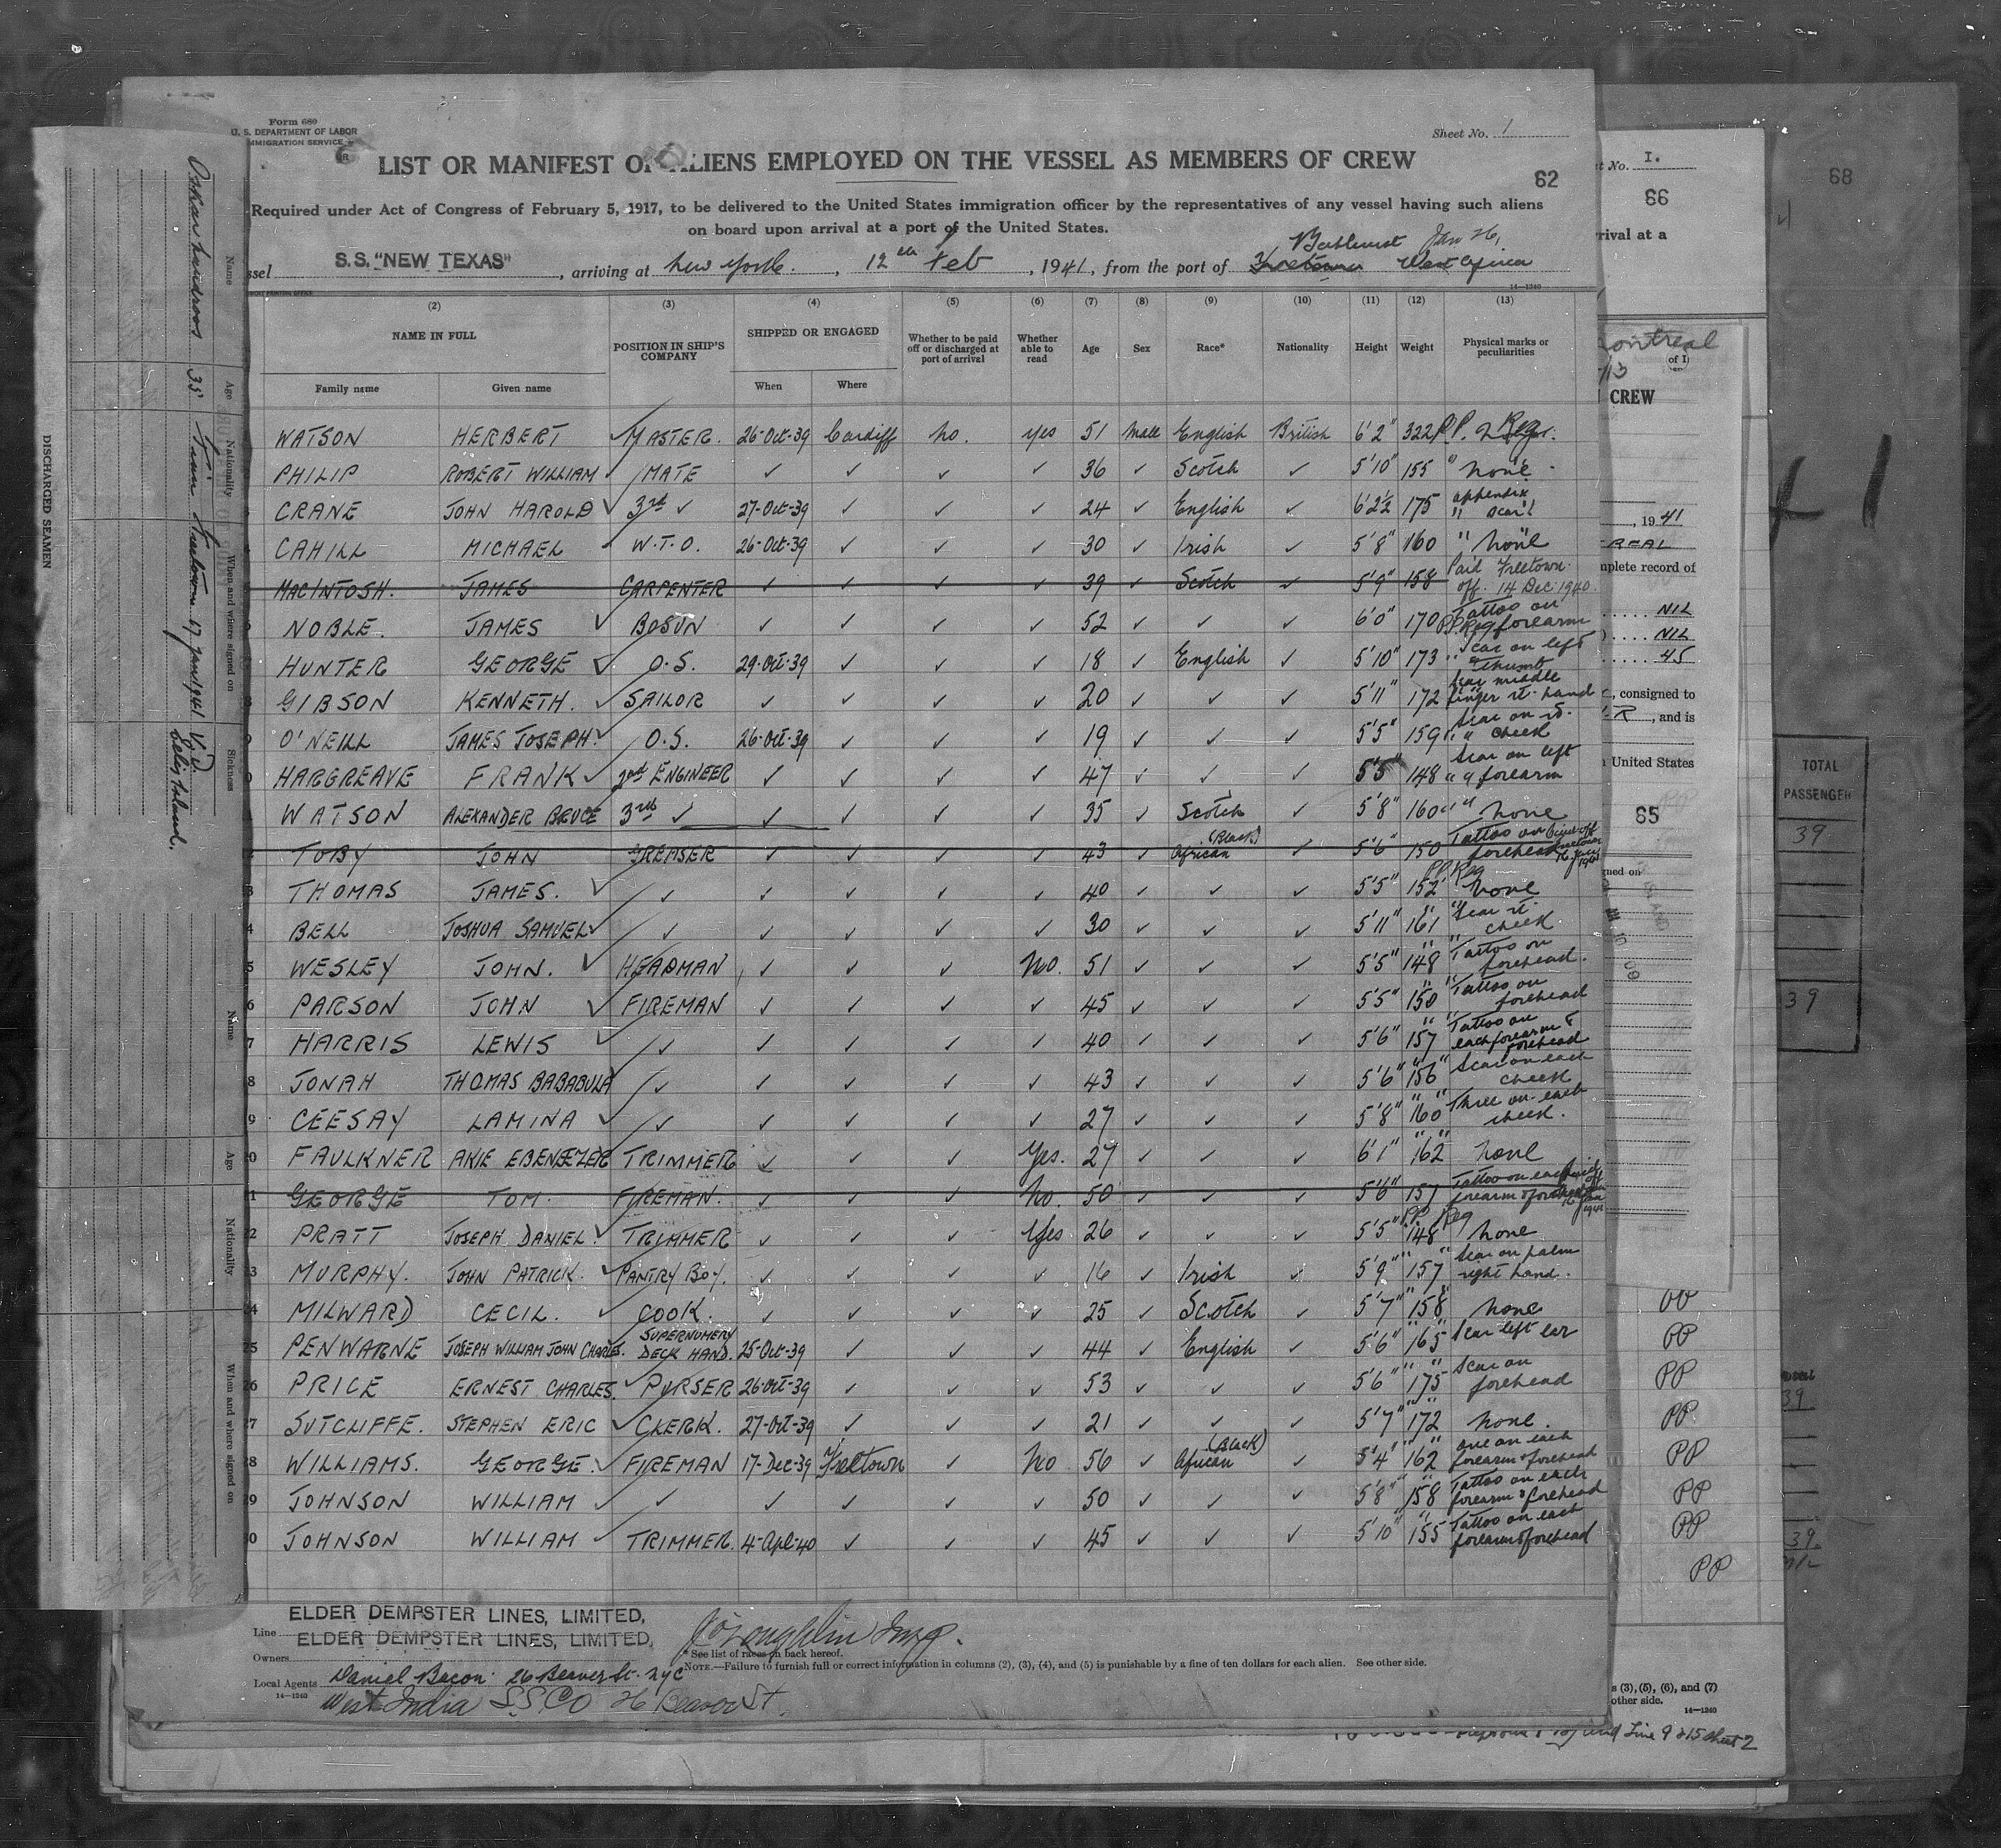 Form 680
U. S. DEPARTMENT OF LABOR
IMMIGRATION SERVICE
Sheet No. 1
LIST OR MANIFEST OF ALIENS EMPLOYED ON THE VESSEL AS MEMBERS OF CREW
62
Required under Act of Congress of February 5, 1917, to be delivered to the United States immigration officer by the representatives of any vessel having such aliens
on board upon arrival at a port of the United States.
Bathurst Jan 26,
ssel S.S. "NEW TEXAS", arriving at New York, 12th Feb, 1941, from the port of Freetown West Africa
14—1240
(2) (3) (4) (5) (6) (7) (8) (9) (10) (11) (12) (13)
NAME IN FULL POSITION IN SHIP'S COMPANY SHIPPED OR ENGAGED Whether to be paid off or discharged at port of arrival Whether able to read Age Sex Race* Nationality Height Weight Physical marks or peculiarities
Family name Given name When Where
WATSON HERBERT ✓ MASTER. 26-Oct-39 Cardiff No. yes 51 Male English British 6'2" 322 P.P. Reg.
PHILIP ROBERT WILLIAM ✓ MATE ✓ ✓ ✓ ✓ 36 ✓ Scotch ✓ 5'10" 155 " None
CRANE JOHN HAROLD ✓ 3rd ✓ 27-Oct-39 ✓ ✓ ✓ 24 ✓ English ✓ 6'2½ 175 appendix " scar
CAHILL MICHAEL ✓ W.T.O. 26-Oct-39 ✓ ✓ ✓ 30 ✓ Irish ✓ 5'8" 160 " None
MACINTOSH. JAMES CARPENTER ✓ ✓ ✓ ✓ 39 ✓ Scotch ✓ 5'9" 158 Paid Freetown. off. 14 Dec 1940
NOBLE. JAMES ✓ BOSUN ✓ ✓ ✓ ✓ 52 ✓ ✓ ✓ 6'0" 170 P.P. Reg Tattoo on forearm
HUNTER GEORGE ✓ O.S. 29-Oct-39 ✓ ✓ ✓ 18 ✓ English ✓ 5'10" 173 " Scar on left thumb
GIBSON KENNETH. ✓ SAILOR ✓ ✓ ✓ ✓ 20 ✓ ✓ ✓ 5'11" 172 Scar middle finger rt. hand
O'NEILL JAMES JOSEPH ✓ O.S. 26-Oct-39 ✓ ✓ ✓ 19 ✓ ✓ ✓ 5'5" 159 " " Scar on rt. cheek
HARGREAVE FRANK ✓ 2nd ENGINEER ✓ ✓ ✓ ✓ 47 ✓ ✓ ✓ 5'5" 148 " " Scar on left forearm
WATSON ALEXANDER BRUCE 3rd ✓ ✓ ✓ ✓ ✓ 35 ✓ Scotch ✓ 5'8" 160 " " None
TOBY JOHN GREMSER ✓ ✓ ✓ ✓ 43 ✓ (Black) African ✓ 5'6" 150 Tattoo on forehead
THOMAS JAMES. ✓ ✓ ✓ ✓ ✓ ✓ 40 ✓ ✓ ✓ 5'5" 152 P.P. Reg None
BELL JOSHUA SAMUEL ✓ ✓ ✓ ✓ ✓ ✓ 30 ✓ ✓ ✓ 5'11" 161 " " Scar rt. cheek
WESLEY JOHN. ✓ HEADMAN ✓ ✓ ✓ No. 51 ✓ ✓ ✓ 5'5" 148 " " Tattoo on forehead.
PARSON JOHN ✓ FIREMAN ✓ ✓ ✓ ✓ 45 ✓ ✓ ✓ 5'5" 150 " " Tattoo on forehead
HARRIS LEWIS ✓ ✓ ✓ ✓ ✓ ✓ 40 ✓ ✓ ✓ 5'6" 157 " " Tattoo on each forearm & forehead
JONAH THOMAS BABABULA ✓ ✓ ✓ ✓ ✓ 43 ✓ ✓ ✓ 5'6" 156 " " Scar on each cheek
CEESAY LAMINA ✓ ✓ ✓ ✓ ✓ ✓ 27 ✓ ✓ ✓ 5'8" 160 " " Three on each cheek.
FAULKNER AKIE EBENEZER TRIMMER ✓ ✓ ✓ Yes. 27 ✓ ✓ ✓ 6'1" 162 " " None
GEORGE TOM. FIREMAN. ✓ ✓ ✓ No. 50 ✓ ✓ ✓ 5'6" 157 Tattoo on each forearm & forehead
PRATT JOSEPH DANIEL ✓ TRIMMER ✓ ✓ ✓ Yes 26 ✓ ✓ ✓ 5'5" 148 P.P. Reg None
MURPHY. JOHN PATRICK. ✓ PANTRY BOY. ✓ ✓ ✓ ✓ 16 ✓ Irish ✓ 5'9" 157 " " Scar on palm right hand.
MILWARD CECIL. ✓ COOK. ✓ ✓ ✓ ✓ 25 ✓ Scotch ✓ 5'7" 158 " " None
PENWARNE JOSEPH WILLIAM JOHN CHARLES. SUPERNUMERY DECK HAND. 25-Oct-39 ✓ ✓ ✓ 44 ✓ English ✓ 5'6" 165 " " Scar left ear
PRICE ERNEST CHARLES. ✓ PURSER 26-Oct-39 ✓ ✓ ✓ 53 ✓ ✓ ✓ 5'6" 175 " " Scar on forehead
SUTCLIFFE. STEPHEN ERIC ✓ CLERK. 27-Oct-39 ✓ ✓ ✓ 21 ✓ ✓ ✓ 5'7" 172 " " None.
WILLIAMS. GEORGE. ✓ FIREMAN 17-Dec-39 Freetown ✓ No 56 ✓ (Black) African ✓ 5'4" 162 " " one on each forearm & forehead
JOHNSON WILLIAM ✓ ✓ ✓ ✓ ✓ ✓ 50 ✓ ✓ ✓ 5'8" 158 " " Tattoo on each forearm & forehead
JOHNSON WILLIAM ✓ TRIMMER. 4-Apl-40 ✓ ✓ ✓ 45 ✓ ✓ ✓ 5'10" 155 " " Tattoo on each forearm & forehead
Line ELDER DEMPSTER LINES, LIMITED,
Owners ELDER DEMPSTER LINES, LIMITED,
Local Agents Daniel Bacon. 26 Beaver St. NYC
West India S.S. Co 26 Beaver St.
14—1240
* See list of races on back hereof.
NOTE.—Failure to furnish full or correct information in columns (2), (3), (4), and (5) is punishable by a fine of ten dollars for each alien. See other side.
DISCHARGED SEAMEN
Name Age Nationality When and where signed on Sickness
35 Finn Freetown 17 Jan 1941 V.D. Ellis Island.
Name Age Nationality When and where signed on
t No. 1.
66
rival at a
ontreal
CREW
, 1941
REAL
mplete record of
NIL
NIL
45
, consigned to
, and is
United States
65
gned on
PP
PP
PP
PP
PP
PP
PP
PP
s (3), (5), (6), and (7)
other side.
14—1240
Line 9 & 15 Sheet 2
68
41
TOTAL
PASSENGER
39
39
39
39